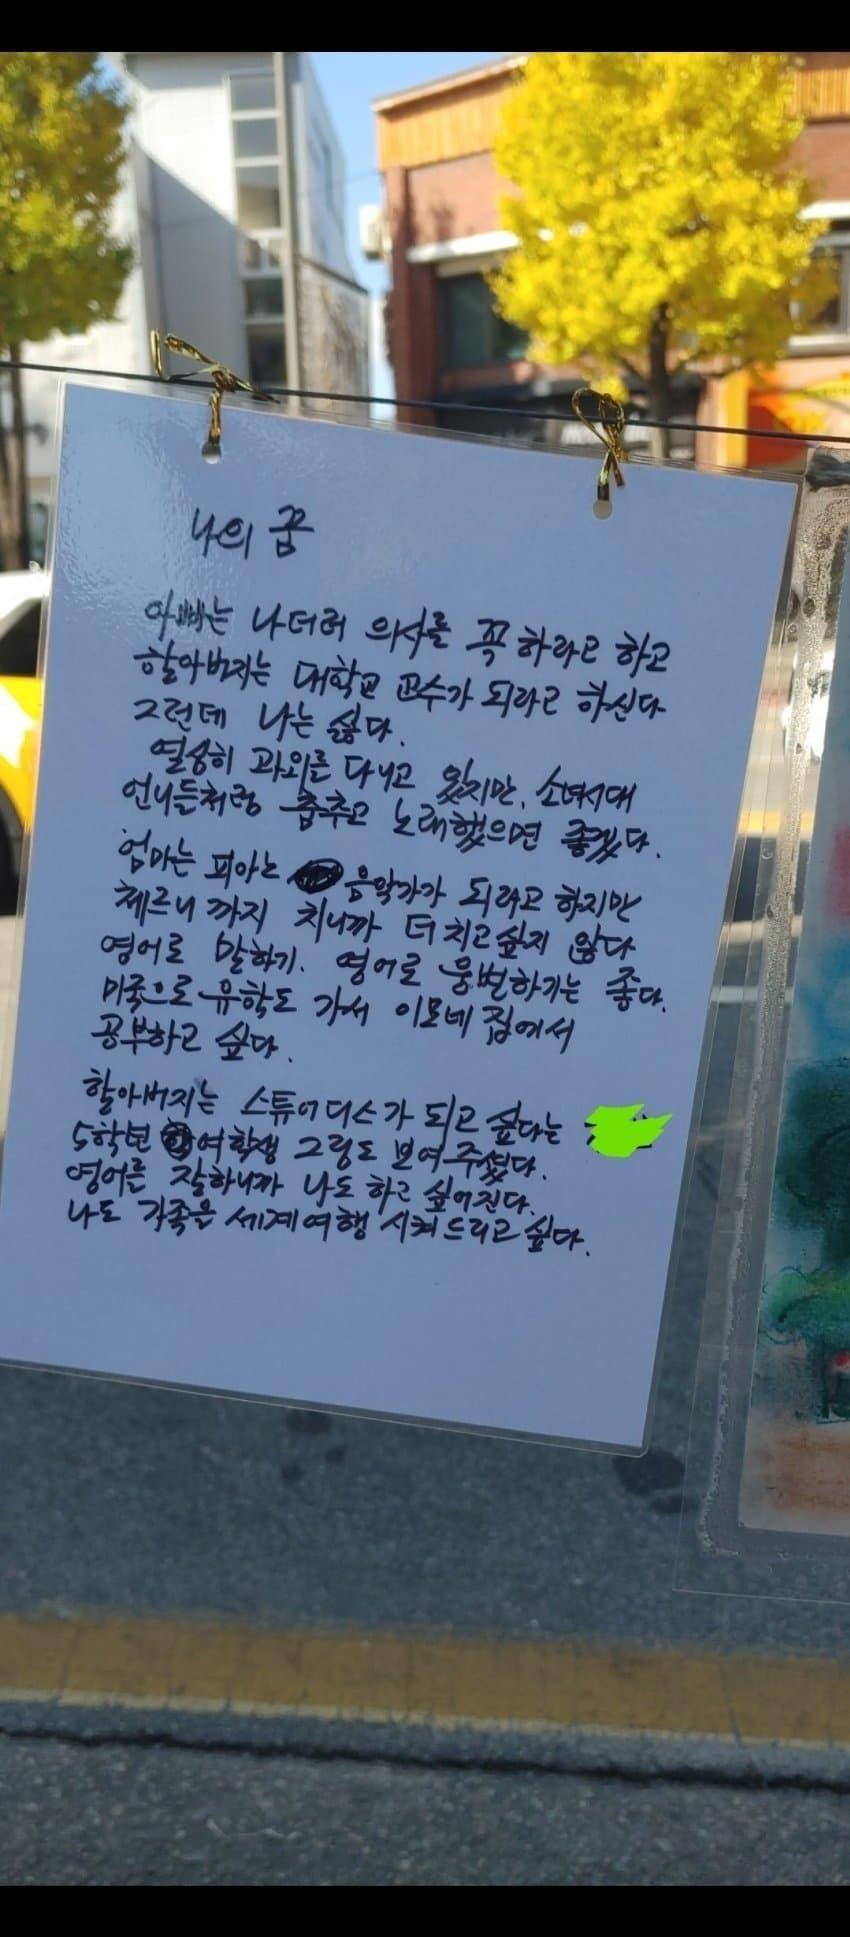 나의 꿈
아빠는 나더러 의사를 꼭 하라고 하고
할아버지는 대학교 교수가 되라고 하신다
그런데 나는 싫다.
열심히 과외를 다니고 있지만, 소녀시대
언니들처럼 춤추고 노래했으면 좋겠다.
엄마는 피아노 음악가가 되라고 하지만
체르니 까지 치니까 더 치고싶지 않다
영어로 말하기. 영어로 웅변하기는 좋다.
미국으로 유학도 가서 이모네 집에서
공부하고 싶다.
할아버지는 스튜어디스가 되고 싶다는
5학년 여학생 그림도 보여주셨다.
영어를 잘하니까 나도 하고 싶어진다.
나도 가족을 세계여행 시켜드리고 싶다.